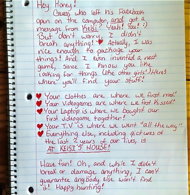 Hey Honey!
Guess who left his Facebook
open on the computer and got a
message from Kelsi "Yeah! You!" ?
But don't worry, I didn't
break anything! ♥ Actually, I was
nice enough to package up your
things! And I even invented a neat
game, since I know you like
looking for things (like other girls) Here's
where you'll find your stuff!
♥ Your clothes are where we first met!
♥ Your videogames are where we first kissed!
♥ Your laptop is where we bought our
first videogame together!
♥ Your T.V is where we went "all the way"
♥ Everything else, including pictures of
the last 2 years of our lives, is
AT KELSI'S HOUSE!
Have fun! Oh, and while I didn't
break or damage anything, I can't
guarantee anyone else won't find
it! Happy hunting!